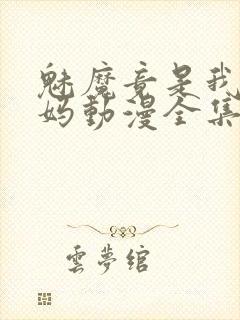 魅魔竟是我
妈動漫全集
雲夢綰